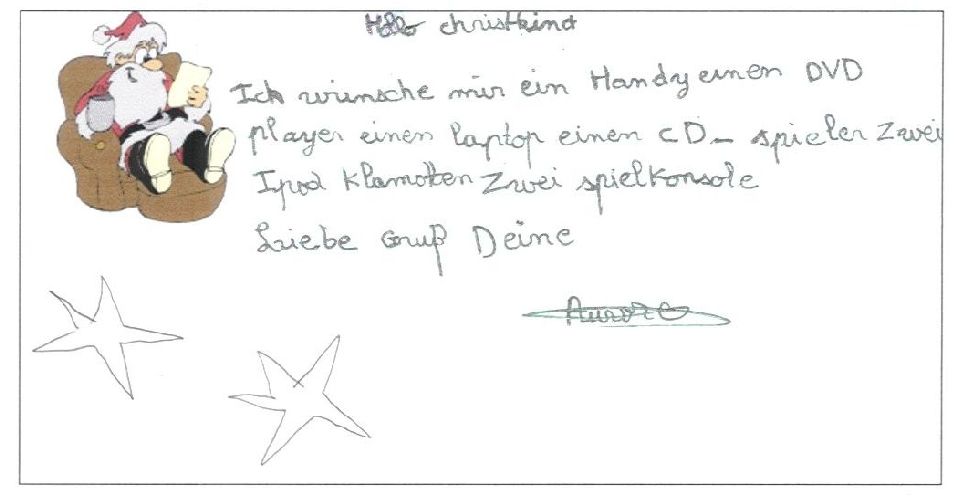 Hallo christkind
Ich wünsche mir ein Handy einen DVD
player einen laptop einen CD_ spieler Zwei
Ipod Klamotten Zwei spielkonsole
Liebe Gruß Deine
Aurore